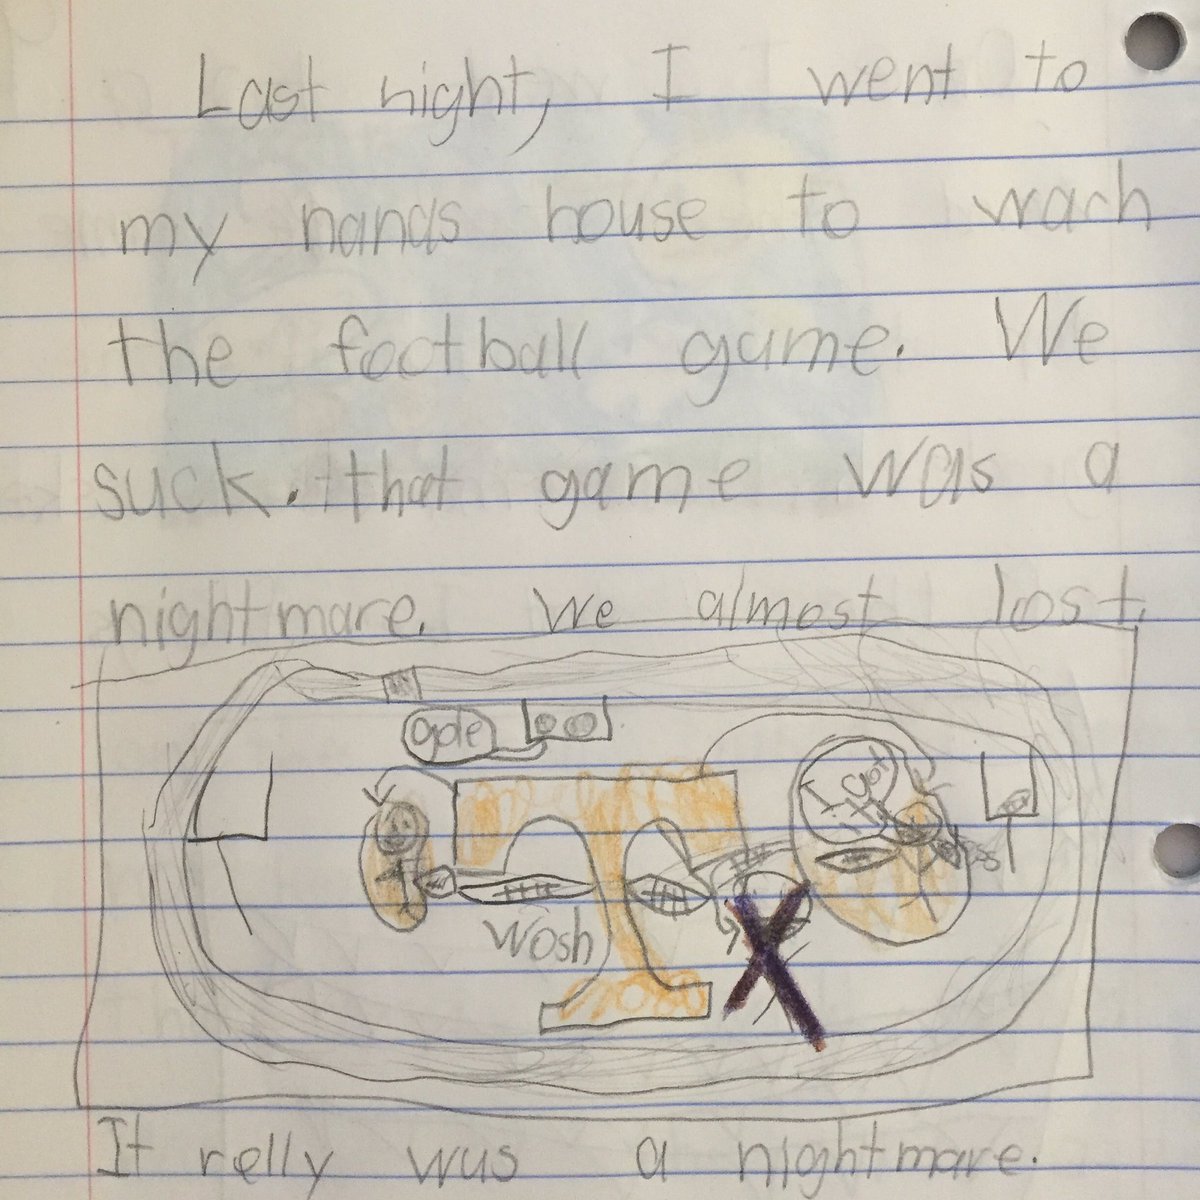 Last night, I went to
my nanas house to wach
the football game. We
suck. that game was a
nightmare. We almost lost.
I Got
it
Wosh
T
X
It relly was a nightmare.